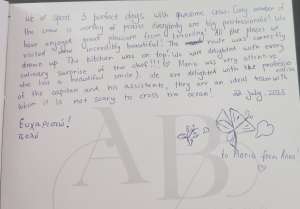 We've spent 3 perfect days with awesome crew. Every member of
the crew is worthy of praise. Everybody are big professionals! We
have enjoyed great pleasure from yachting! All the places we
visited were incredibly beautiful! The route was correctly
drawn up. The kitchen was on top! We are delighted with every
culinary surprise of the chef!!! Maria was very attentive
who has a beautiful smile). We are delighted with the
of the capitan and his assistente, they are an ideal team with
whom it is not scary to cross the ocean!
22 July 2023
Ευχαριστώ!
πολύ
to Maria from Anna
AB